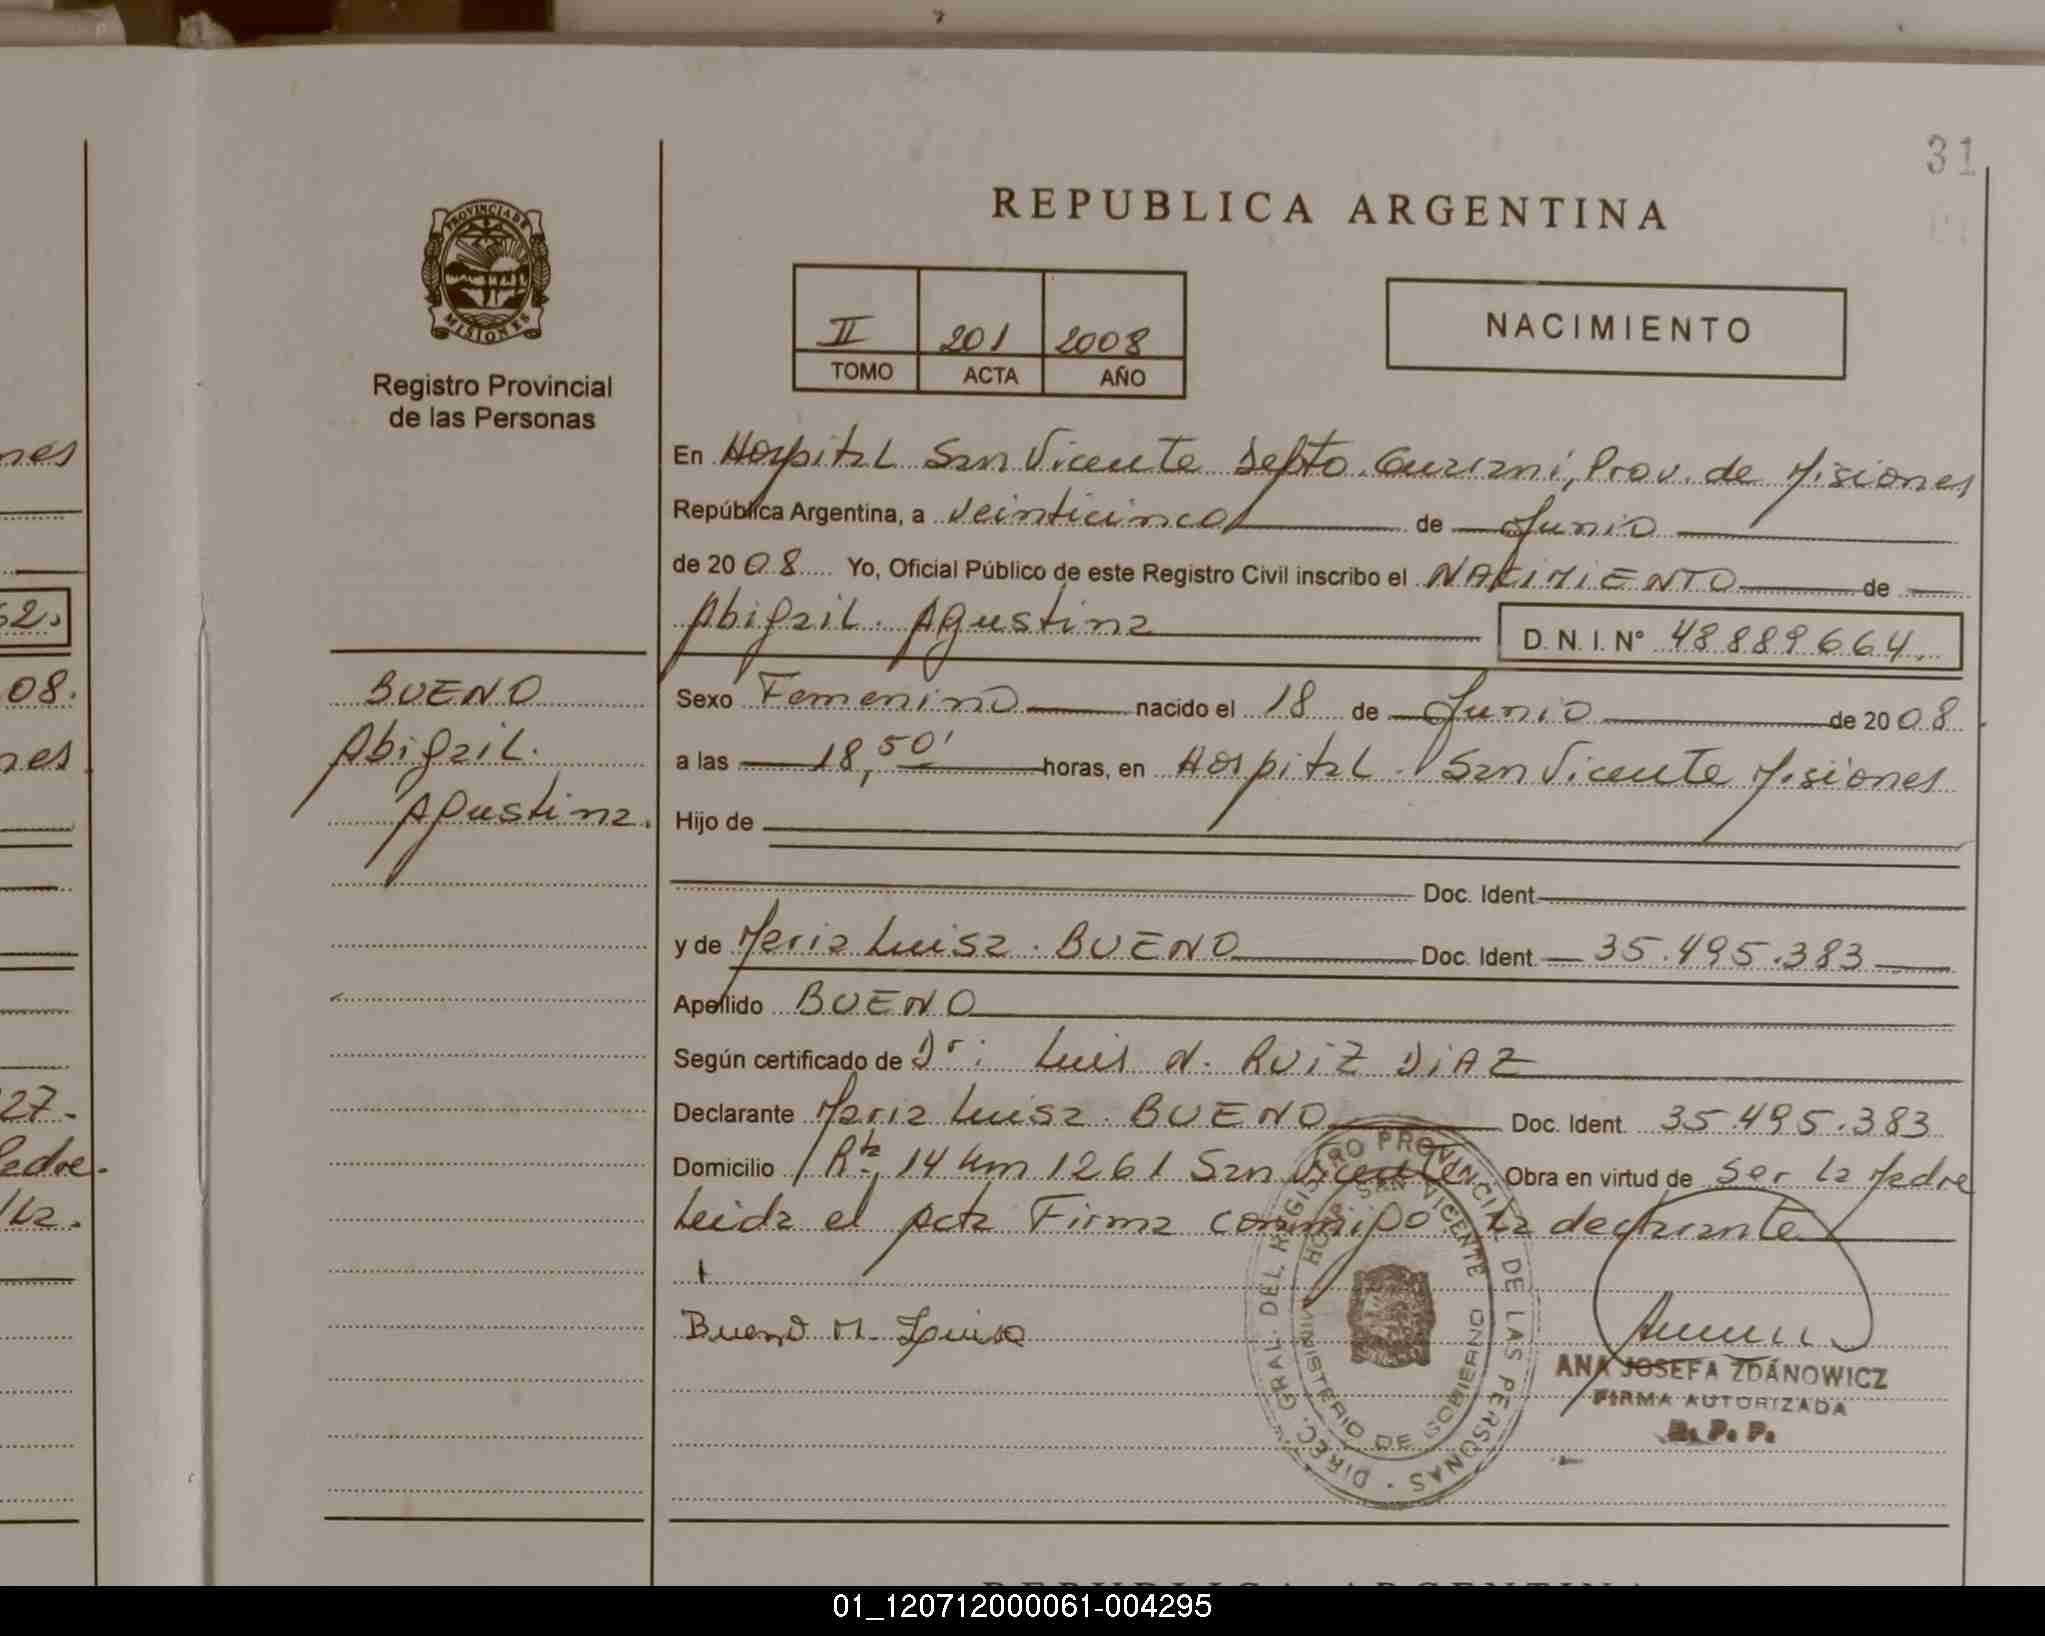 31
REPUBLICA ARGENTINA
PROVINCIA DE
MISIONES
Registro Provincial
de las Personas
II 201 2008
TOMO ACTA AÑO
NACIMIENTO
En Hospital San Vicente Depto. Guaraní, Prov. de Misiones
República Argentina, a veinticinco de Junio
de 2008 Yo, Oficial Público de este Registro Civil inscribo el NACIMIENTO de
Abigail Agustina
D. N. I. N° 48889664
BUENO
Abigail
Agustina.
Sexo Femenino nacido el 18 de Junio de 2008
a las 18,50' horas, en Hospital San Vicente Misiones
Hijo de
Doc. Ident.
y de Maria Luisa BUENO Doc. Ident. 35.495.383
Apellido BUENO
Según certificado de Dr: Luis N. RUIZ DIAZ
Declarante Maria Luisa BUENO Doc. Ident. 35.495.383
Domicilio Rta 14 Km 1261 San Vicente Obra en virtud de Ser la Madre
Leida el Acta Firma conmigo la declarante
Bueno M. Luisa
DIREC. GRAL. DEL REGISTRO PROVINCIAL DE LAS PERSONAS
HOSP. SAN VICENTE
MINISTERIO DE GOBIERNO
ANA JOSEFA ZDANOWICZ
FIRMA AUTORIZADA
R. P. P.
nes
62.
08.
nes
27.
Padre.
REPUBLICA ARGENTINA
01_120712000061-004295